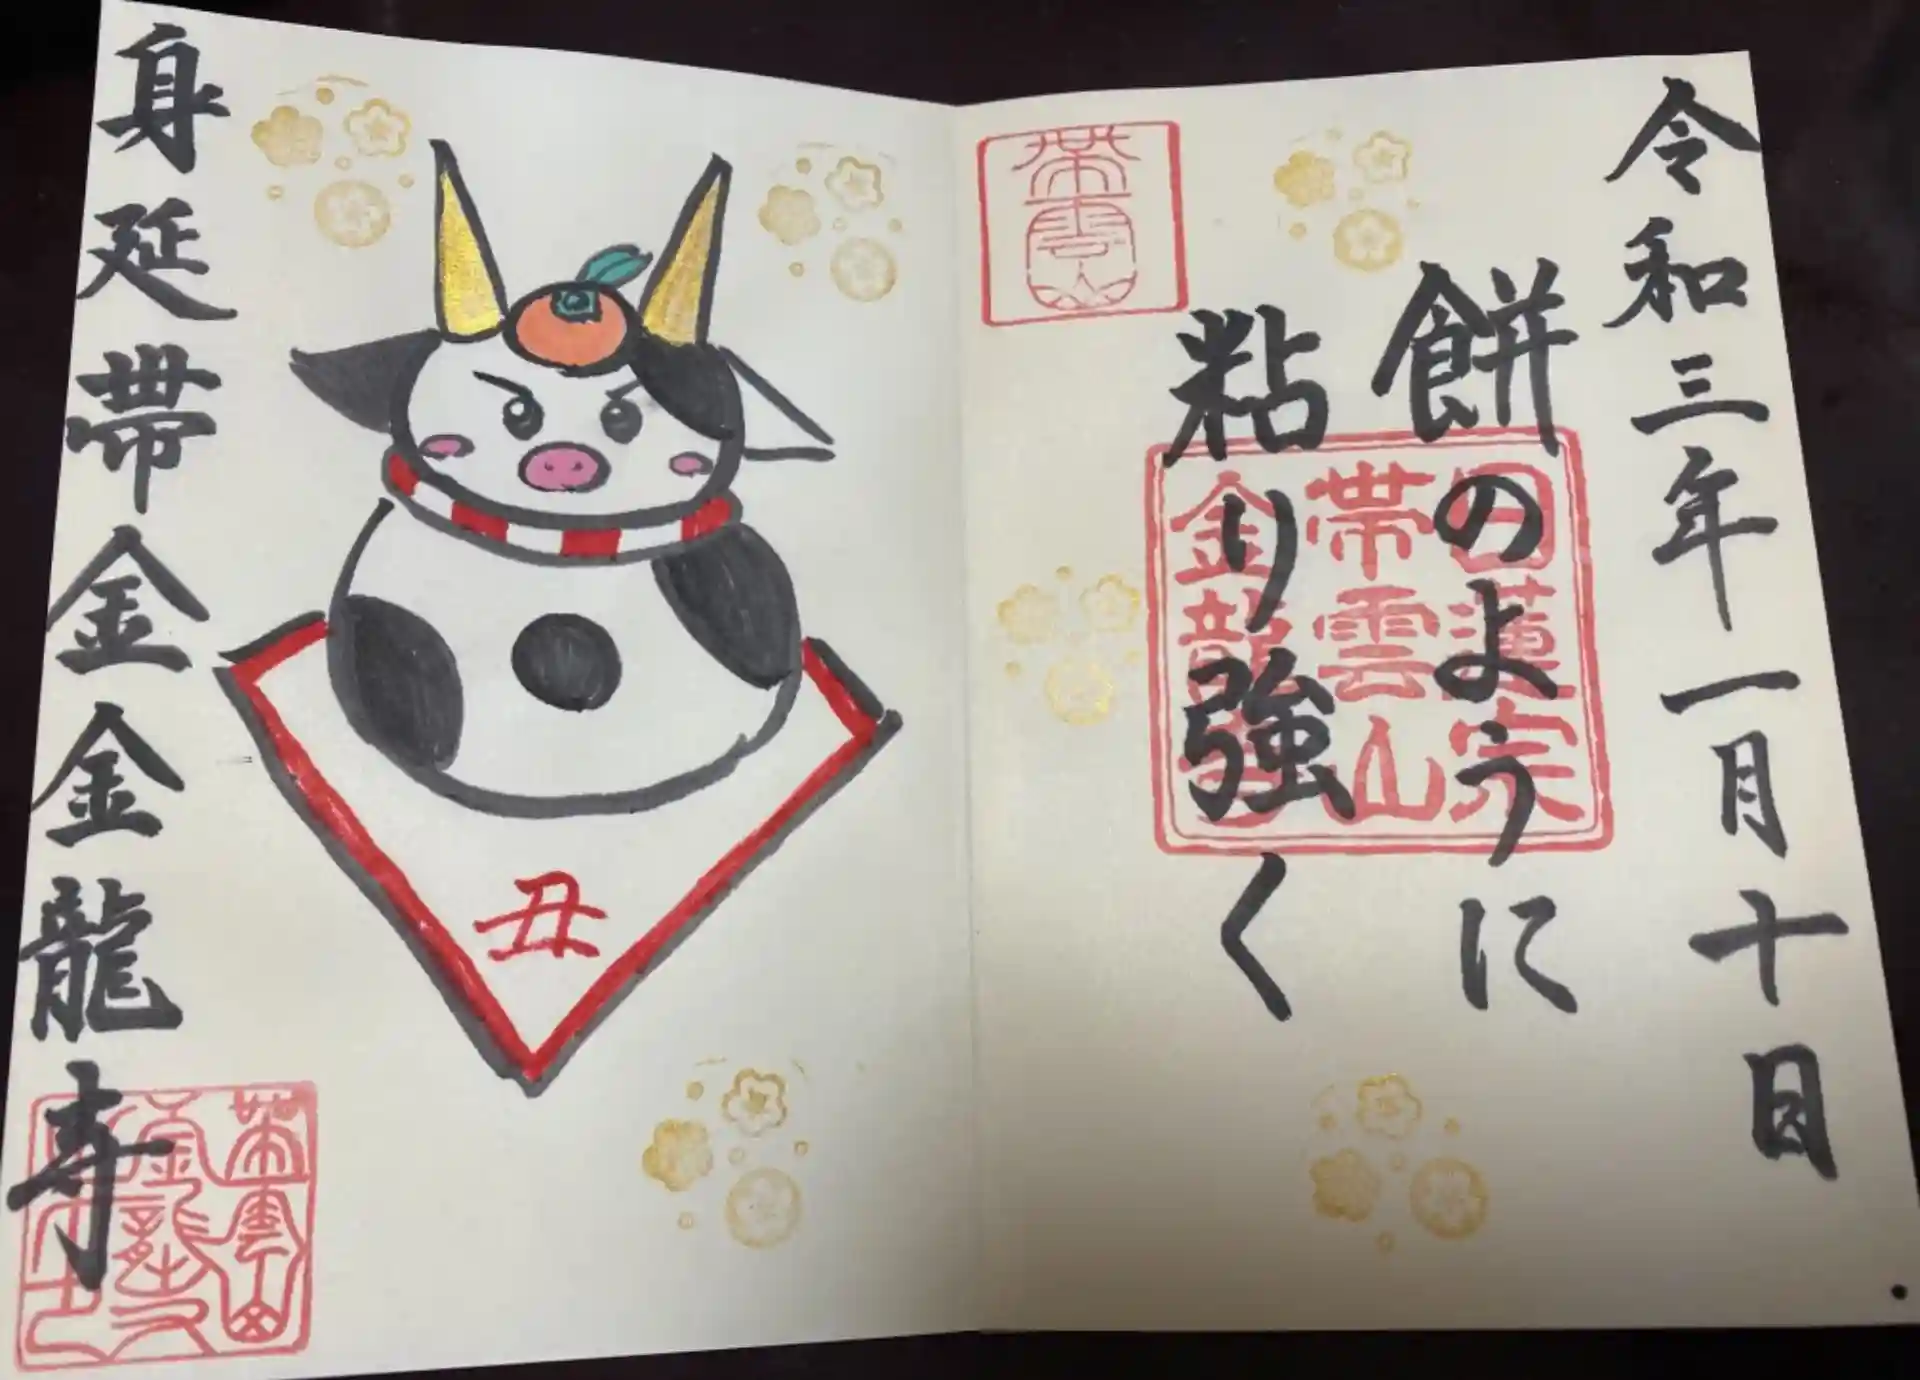 令和三年一月十日
餅のように
粘り強く
日蓮宗
帯雲山
金龍寺
帯雲山
丑
身延帯金金龍寺
帯雲山
金龍寺